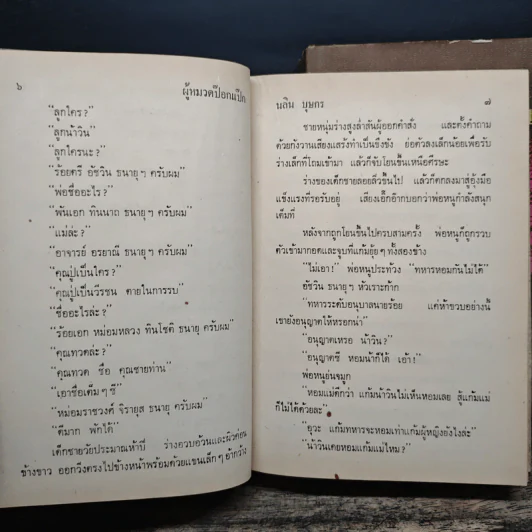 ๖
ผู้หมวดป๊อกแป๊ก
"ลูกใคร?"
"ลูกน้าวิน"
"ลูกใครนะ?"
"ร้อยตรี อัชวิน ธนายุๆ ครับผม"
"พ่อชื่ออะไร?"
"พันเอก ทินนาถ ธนายุๆ ครับผม"
"แม่ล่ะ?"
"อาจารย์ อรยาณี ธนายุๆ ครับผม"
"คุณปู่เป็นใคร?"
"คุณปู่เป็นวีรชน ตายในการรบ"
"ชื่ออะไรล่ะ?"
"ร้อยเอก หม่อมหลวง ทินโชติ ธนายุ ครับผม"
"คุณทวดล่ะ?"
"คุณทวด ชื่อ คุณชายท่าน"
"เอาชื่อเต็มๆ ซี"
"หม่อมราชวงศ์ จิรายุส ธนายุ ครับผม"
"ดีมาก พักได้"
เด็กชายวัยประมาณห้าปี ร่างอวบอ้วนและผิวค่อน
ข้างขาว ออกวิ่งตรงไปข้างหน้าพร้อมด้วยแขนเล็กๆ อ้ากว้าง
นลิน บุษกร
๗
ชายหนุ่มร่างสูงล่ำสันผู้ออกคำสั่ง และตั้งคำถาม
ด้วยกังวานเสียงแสร้งทำเป็นขึงขัง ย่อตัวลงเล็กน้อยเพื่อรับ
ร่างเล็กที่โถมเข้ามา แล้วก็จับโยนขึ้นเหนือศีรษะ
ร่างของเด็กชายลอยลิ่วขึ้นไป! แล้วก็ตกลงมาสู่อุ้งมือ
แข็งแรงที่รอรับอยู่ เสียงเอิ๊กอ๊ากบอกว่าพ่อหนูกำลังสนุก
เต็มที่
หลังจากถูกโยนขึ้นไปครบสามครั้ง พ่อหนูก็ถูกรวบ
ตัวเข้ามากอดและจูบที่แก้มยุ้ยๆ ทั้งสองข้าง
"ไม่เอา!" พ่อหนูประท้วง "ทหารหอมกันไม่ได้"
อัชวิน ธนายุๆ หัวเราะก้าก
"ทหารระดับอนุบาลนายร้อย แค่ห้าขวบอย่างนี้
เขายังอนุญาตให้หรอกน่า"
"อนุญาตเหรอ น้าวิน?"
"อนุญาตซี หอมน้าก็ได้ เอ้า!"
พ่อหนูย่นจมูก
"หอมแม่ดีกว่า แก้มน้าวินไม่เห็นหอมเลย สู้แก้มแม่
ก็ไม่ได้ด้วยละ"
"อุวะ แก้มทหารจะหอมเท่าแก้มผู้หญิงยังไงล่ะ"
"น้าวินเคยหอมแก้มแม่ไหม?"